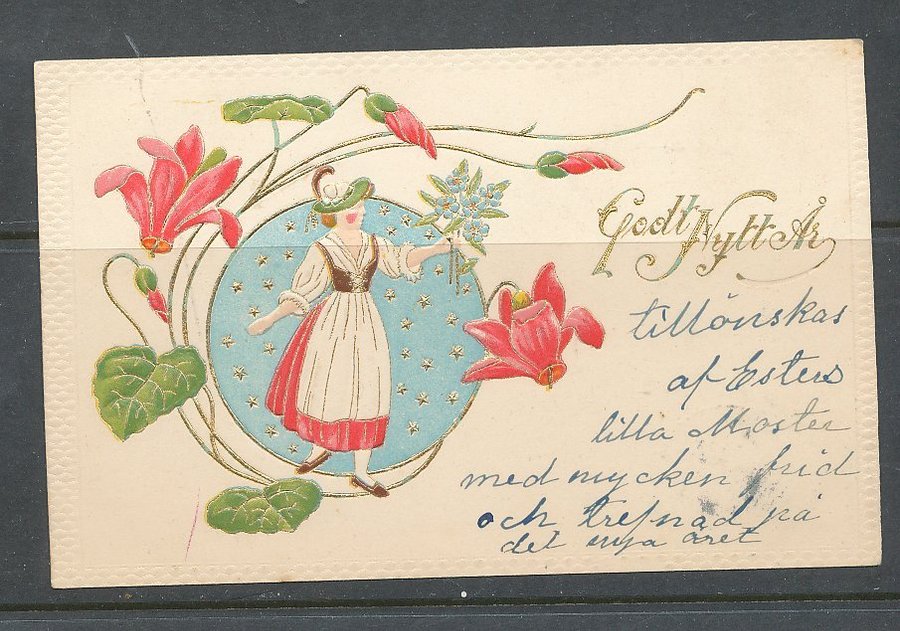 Godt Nytt År
tillönskas
af Esters
lilla Moster
med mycken frid
och trefnad på
det nya året